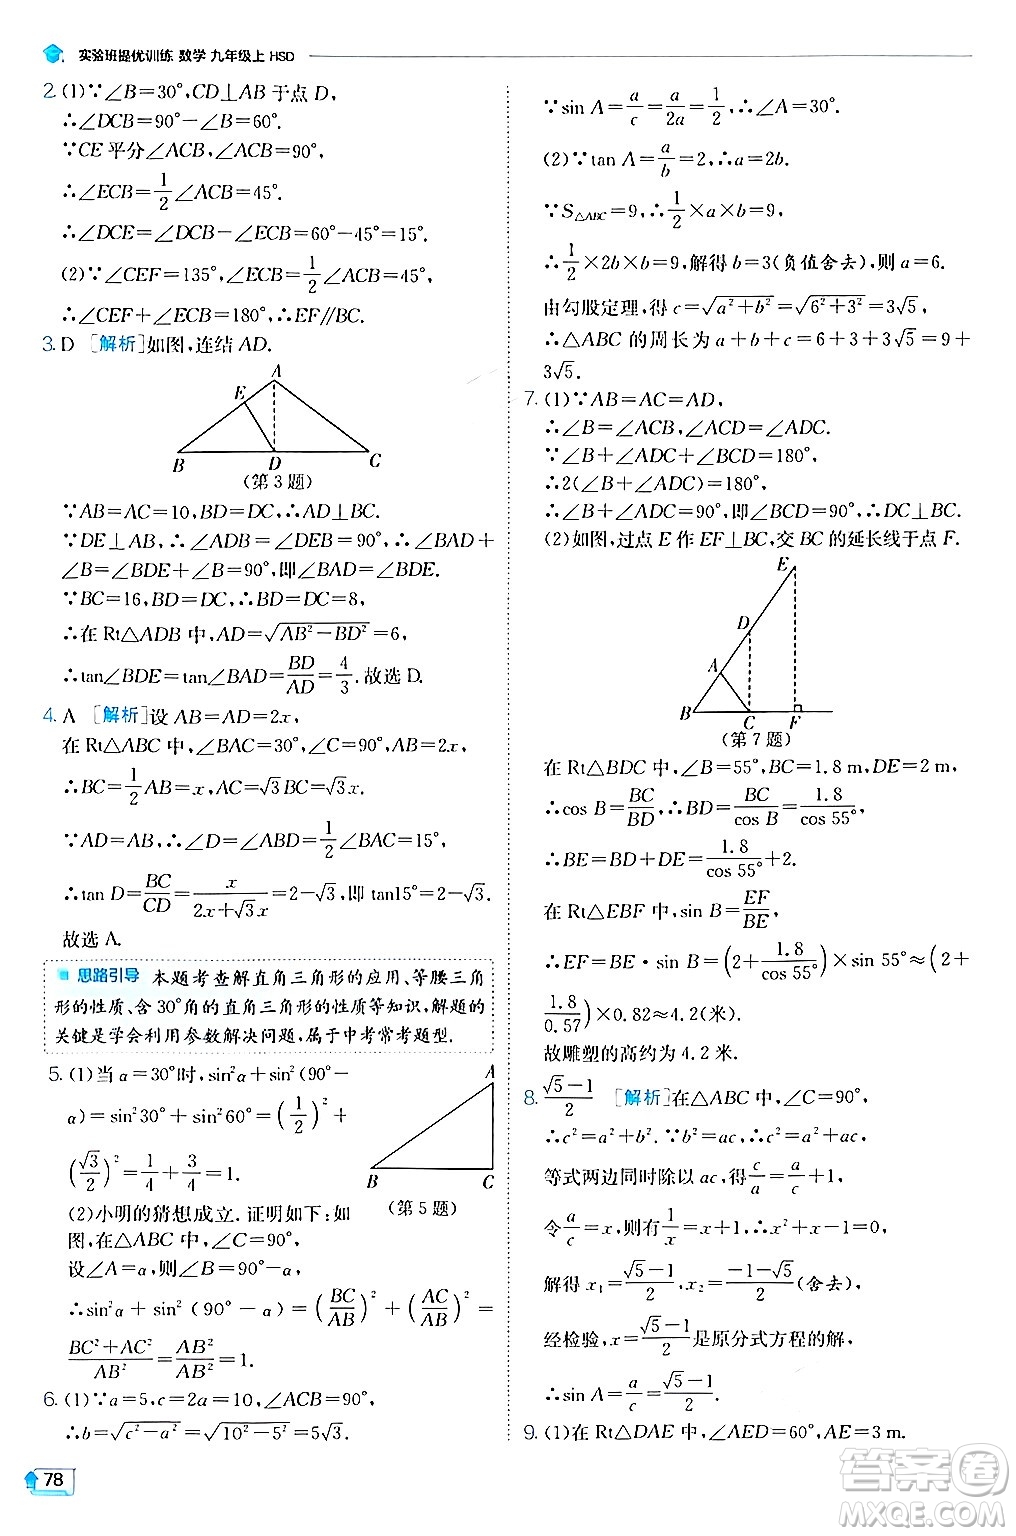 实验班提优训练 数学 九年级上 HSD
2. (1)∵∠B=30°,CD⊥AB于点D,
∴∠DCB=90°-∠B=60°.
∵CE平分∠ACB,∠ACB=90°,
∴∠ECB=1/2∠ACB=45°,
∴∠DCE=∠DCB-∠ECB=60°-45°=15°.
(2)∵∠CEF=135°,∠ECB=1/2∠ACB=45°,
∴∠CEF+∠ECB=180°,∴EF∥BC.
3. D [解析]如图,连结AD.
A
E
B D C
(第3题)
∵AB=AC=10,BD=DC,∴AD⊥BC.
∵DE⊥AB,∴∠ADB=∠DEB=90°,∴∠BAD+
∠B=∠BDE+∠B=90°,即∠BAD=∠BDE.
∵BC=16,BD=DC,∴BD=DC=8,
∴在Rt△ADB中,AD=√(AB²-BD²)=6,
∴tan∠BDE=tan∠BAD=BD/AD=4/3.故选D.
4. A [解析]设AB=AD=2x,
在Rt△ABC中,∠BAC=30°,∠C=90°,AB=2x,
∴BC=1/2AB=x,AC=√3BC=√3x.
∵AD=AB,∴∠D=∠ABD=1/2∠BAC=15°,
∴tan D=BC/CD=x/(2x+√3x)=2-√3,即tan15°=2-√3.
故选A.
思路引导 本题考查解直角三角形的应用、等腰三角
形的性质、含30°角的直角三角形的性质等知识,解题的
关键是学会利用参数解决问题,属于中考常考题型.
5. (1)当α=30°时,sin²α+sin²(90°-
α)=sin²30°+sin²60°=(1/2)²+
(√3/2)²=1/4+3/4=1.
(2)小明的猜想成立.证明如下:如
图,在△ABC中,∠C=90°,
设∠A=α,则∠B=90°-α,
A
B C
(第5题)
∴sin²α+sin²(90°-α)=(BC/AB)²+(AC/AB)²=
(BC²+AC²)/AB²=AB²/AB²=1.
6. (1)∵a=5,c=2a=10,∠ACB=90°,
∴b=√(c²-a²)=√(10²-5²)=5√3.
78
∵sin A=a/c=a/2a=1/2,∴∠A=30°.
(2)∵tan A=a/b=2,∴a=2b.
∵S△ABC=9,∴1/2×a×b=9,
∴1/2×2b×b=9,解得b=3(负值舍去),则a=6.
由勾股定理,得c=√(a²+b²)=√(6²+3²)=3√5,
∴△ABC的周长为a+b+c=6+3+3√5=9+
3√5.
7. (1)∵AB=AC=AD,
∴∠B=∠ACB,∠ACD=∠ADC.
∵∠B+∠ACB+∠ACD+∠ADC=180°,
∴2(∠B+∠ADC)=180°,
∴∠B+∠ADC=90°,即∠BCD=90°,∴DC⊥BC.
(2)如图,过点E作EF⊥BC,交BC的延长线于点F.
E
D
A
B C F
(第7题)
在Rt△BDC中,∠B=55°,BC=1.8 m,DE=2 m,
∴cos B=BC/BD,∴BD=BC/cos B=1.8/cos 55°,
∴BE=BD+DE=1.8/cos 55°+2.
在Rt△EBF中,sin B=EF/BE,
∴EF=BE·sin B=(2+1.8/cos 55°)×sin 55°≈(2+
1.8/0.57)×0.82≈4.2(米).
故雕塑的高约为4.2米.
8. (√5-1)/2 [解析]在△ABC中,∠C=90°,
∴c²=a²+b².∵b²=ac,∴c²=a²+ac,
等式两边同时除以ac,得c/a=a/c+1.
令a/c=x,则有1/x=x+1,∴x²+x-1=0,
解得x₁=(√5-1)/2,x₂=(-1-√5)/2(舍去).
经检验,x=(√5-1)/2是原分式方程的解,
∴sin A=a/c=(√5-1)/2.
9. (1)在Rt△DAE中,∠AED=60°,AE=3 m.
答案圈
MXQE.COM